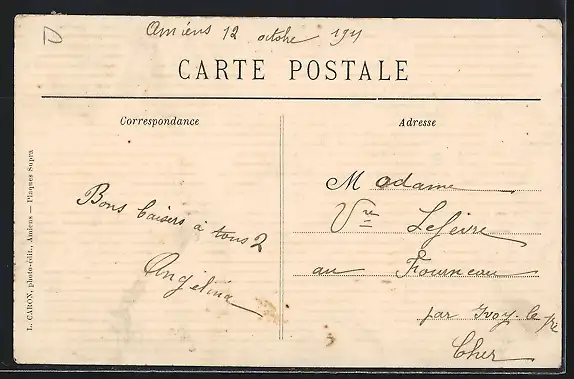 D
Amiens 12 octobre 1911
CARTE POSTALE
Correspondance
Adresse
Bons baisers à tous 2
Angélina
Madame
Vve Lefèvre
au Fourneau
par Ivoy-le-Pré
Cher
L. CARON, photo-édit., Amiens — Plaques Supra